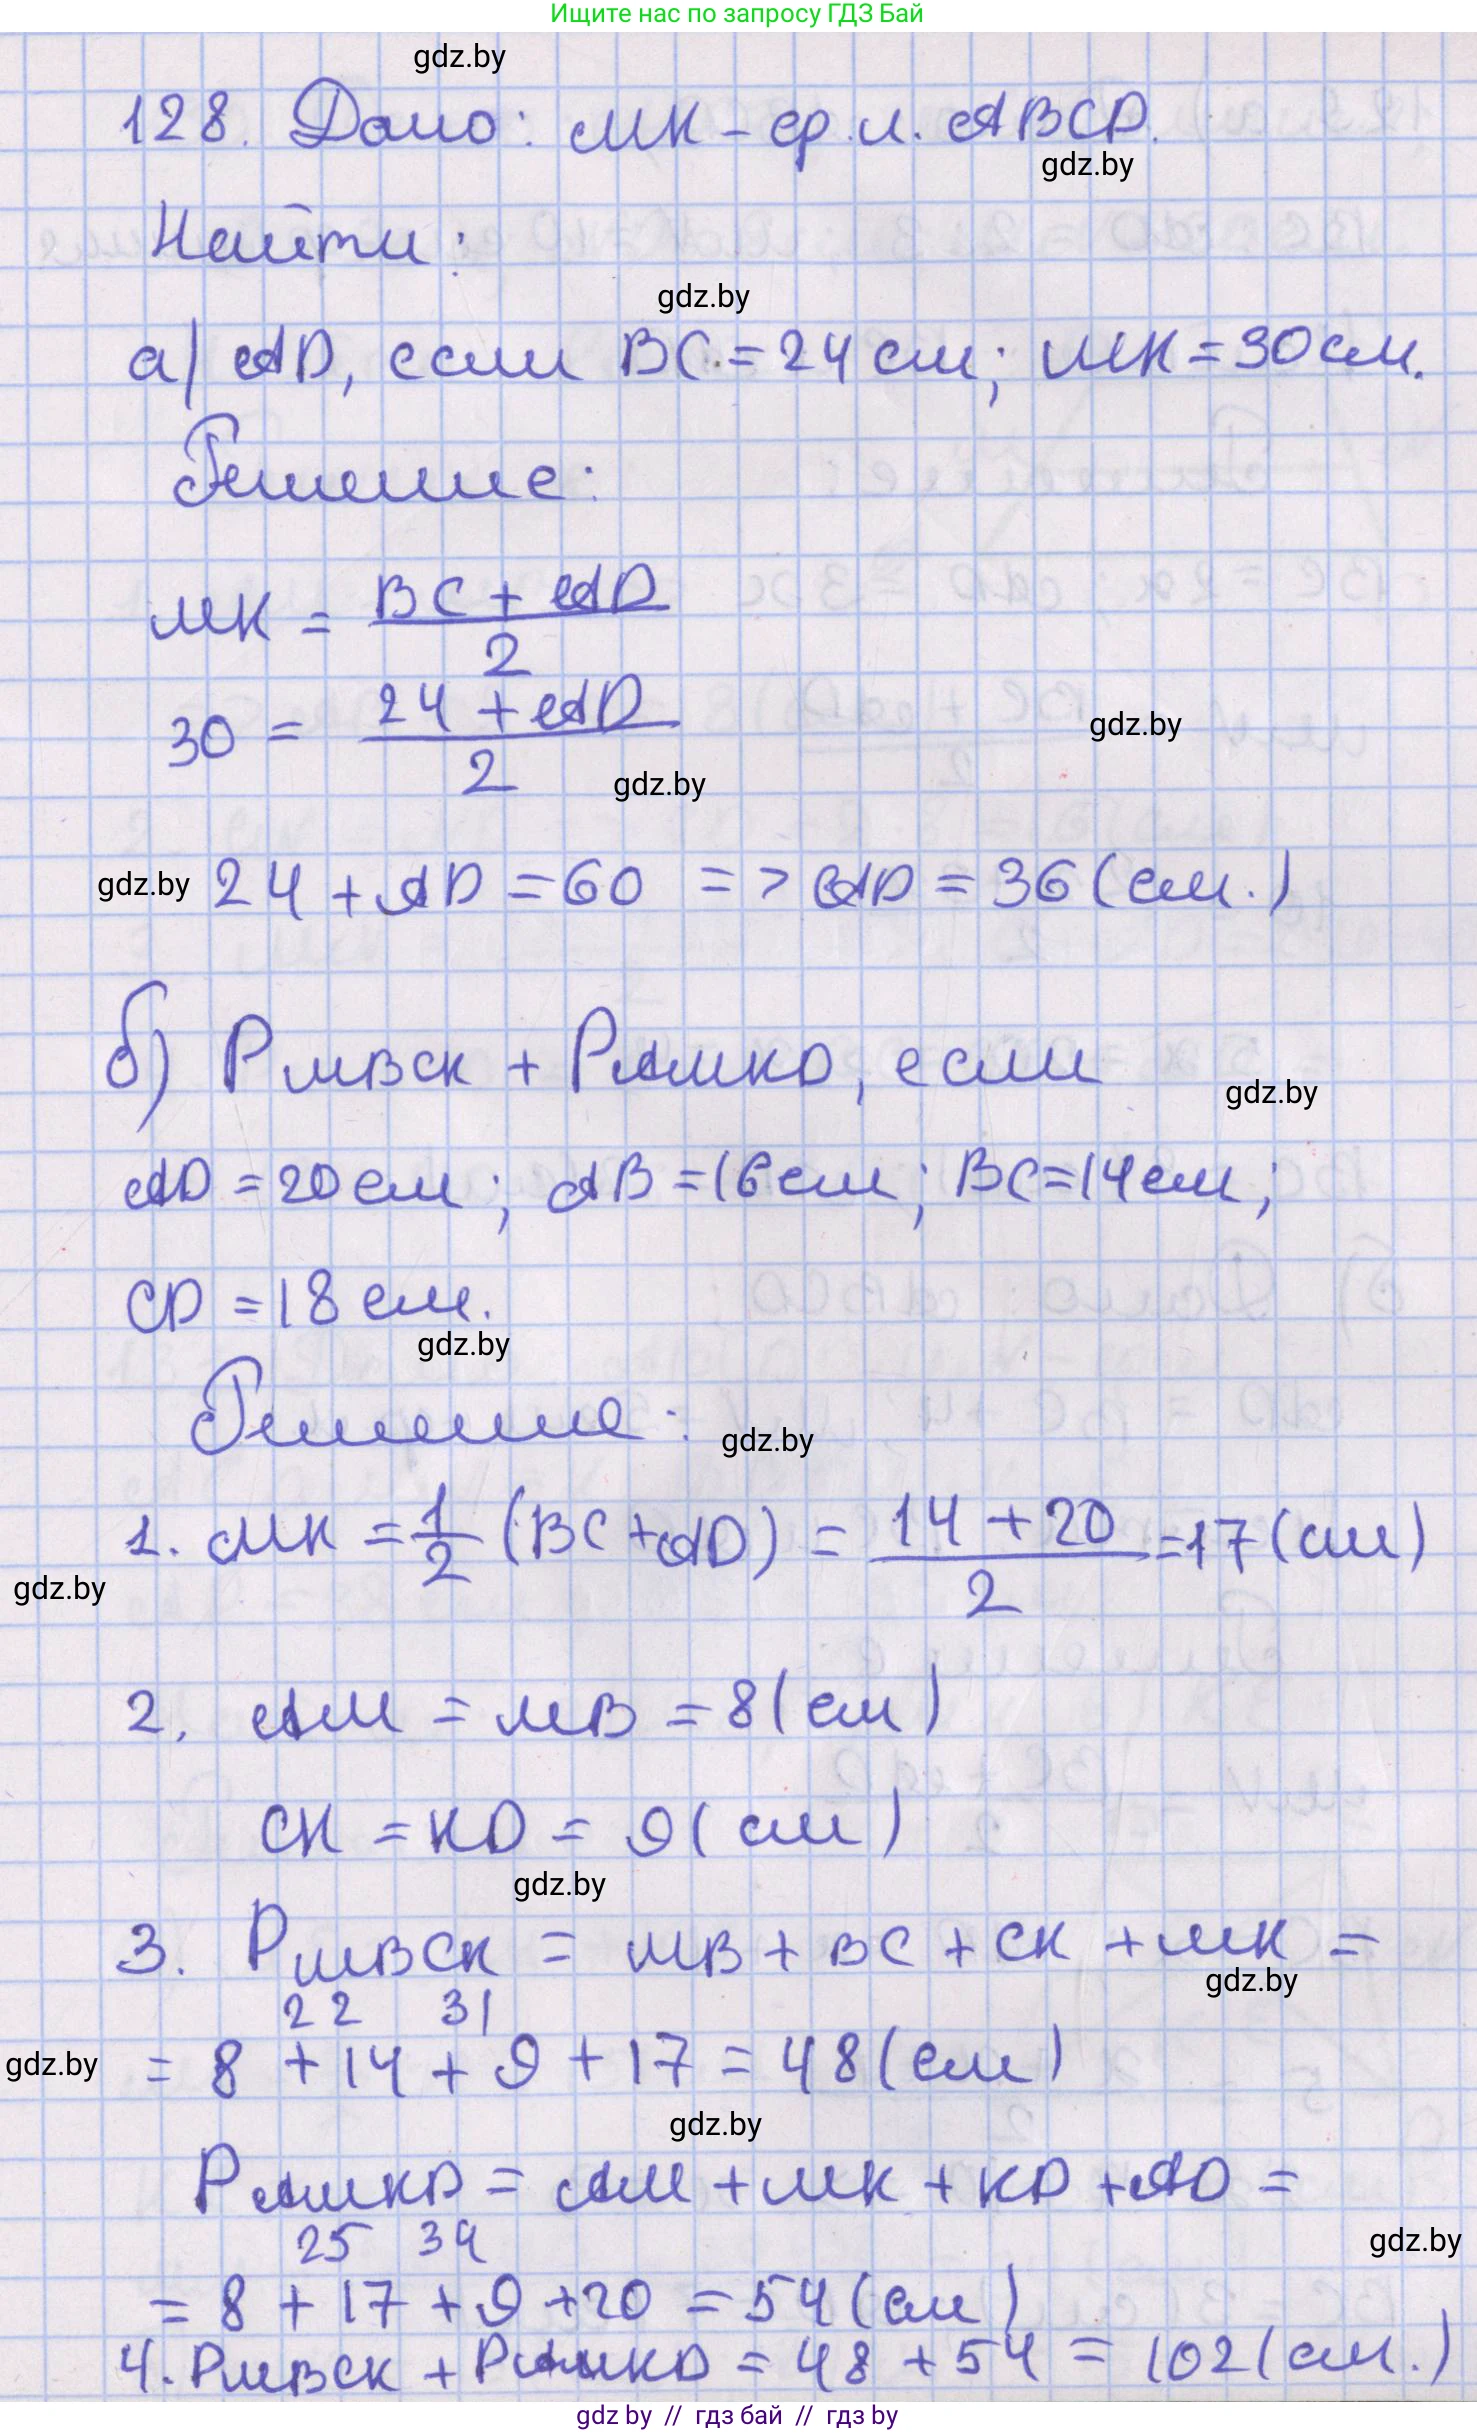 Ищите нас по запросу ГДЗ Бай
gdz.by
128. Дано: МК - ср. л. ABCD.
gdz.by
Найти:
gdz.by
а) AD, если BC = 24 см; МК = 30 см.
Решение:
МК = BC + AD / 2
30 = 24 + AD / 2
gdz.by
gdz.by
gdz.by
24 + AD = 60 => AD = 36 (см.)
б) P МВСК + P АМКD, если
gdz.by
AD = 20 см; AB = 16 см; BC = 14 см;
CD = 18 см.
gdz.by
Решение:
gdz.by
1. МК = 1/2 (BC + AD) = 14 + 20 / 2 = 17 (см)
gdz.by
2. АМ = МВ = 8 (см)
СК = КD = 9 (см)
gdz.by
3. P МВСК = МВ + ВС + СК + МК =
gdz.by
22 31
gdz.by
= 8 + 14 + 9 + 17 = 48 (см)
gdz.by
P АМКD = АМ + МК + КD + AD =
25 34
gdz.by
= 8 + 17 + 9 + 20 = 54 (см)
4. P МВСК + P АМКD = 48 + 54 = 102 (см.)
gdz by // гдз бай // гдз by